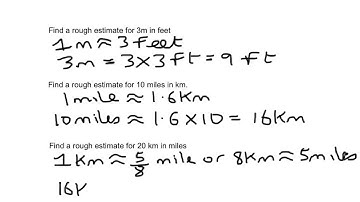 Find a rough estimate for 3m in feet
1m ≈ 3 feet
3m = 3×3ft = 9 ft
Find a rough estimate for 10 miles in km.
1mile ≈ 1.6km
10miles ≈ 1.6×10 = 16km
Find a rough estimate for 20 km in miles
1Km ≈ 5/8 mile or 8Km ≈ 5miles
16K